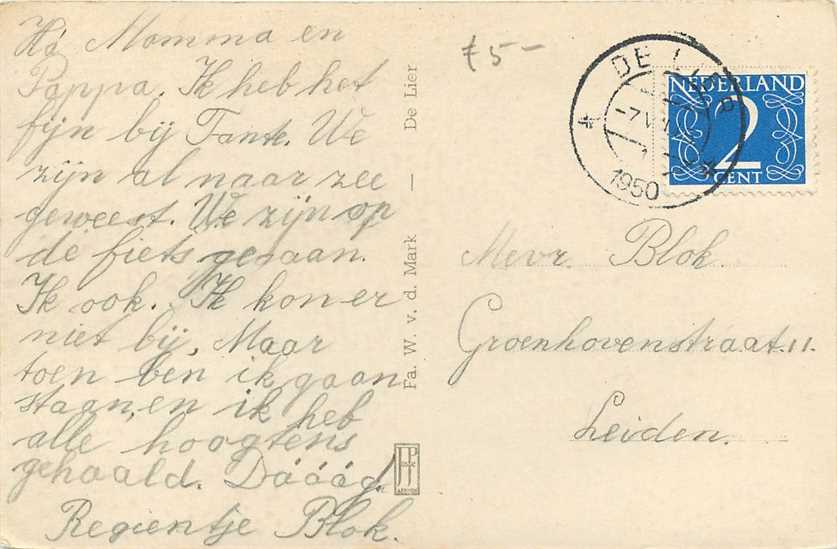 Há Momma en
Pappa. Ik heb het
fijn bij Tante. We
zijn al naar zee
geweest. We zijn op
de fiets gegaan.
Ik ook. Ik kon er
niet bij. Maar
toen ben ik gaan
staan, en ik heb
alle hoogtens
gehaald. Dáááág.
Regientje Blok.
Fa. W. v. d. Mark — De Lier
£5-
DE LIER
1950
NEDERLAND
2
CENT
Mevr. Blok
Groenhovenstraat 11.
Leiden.